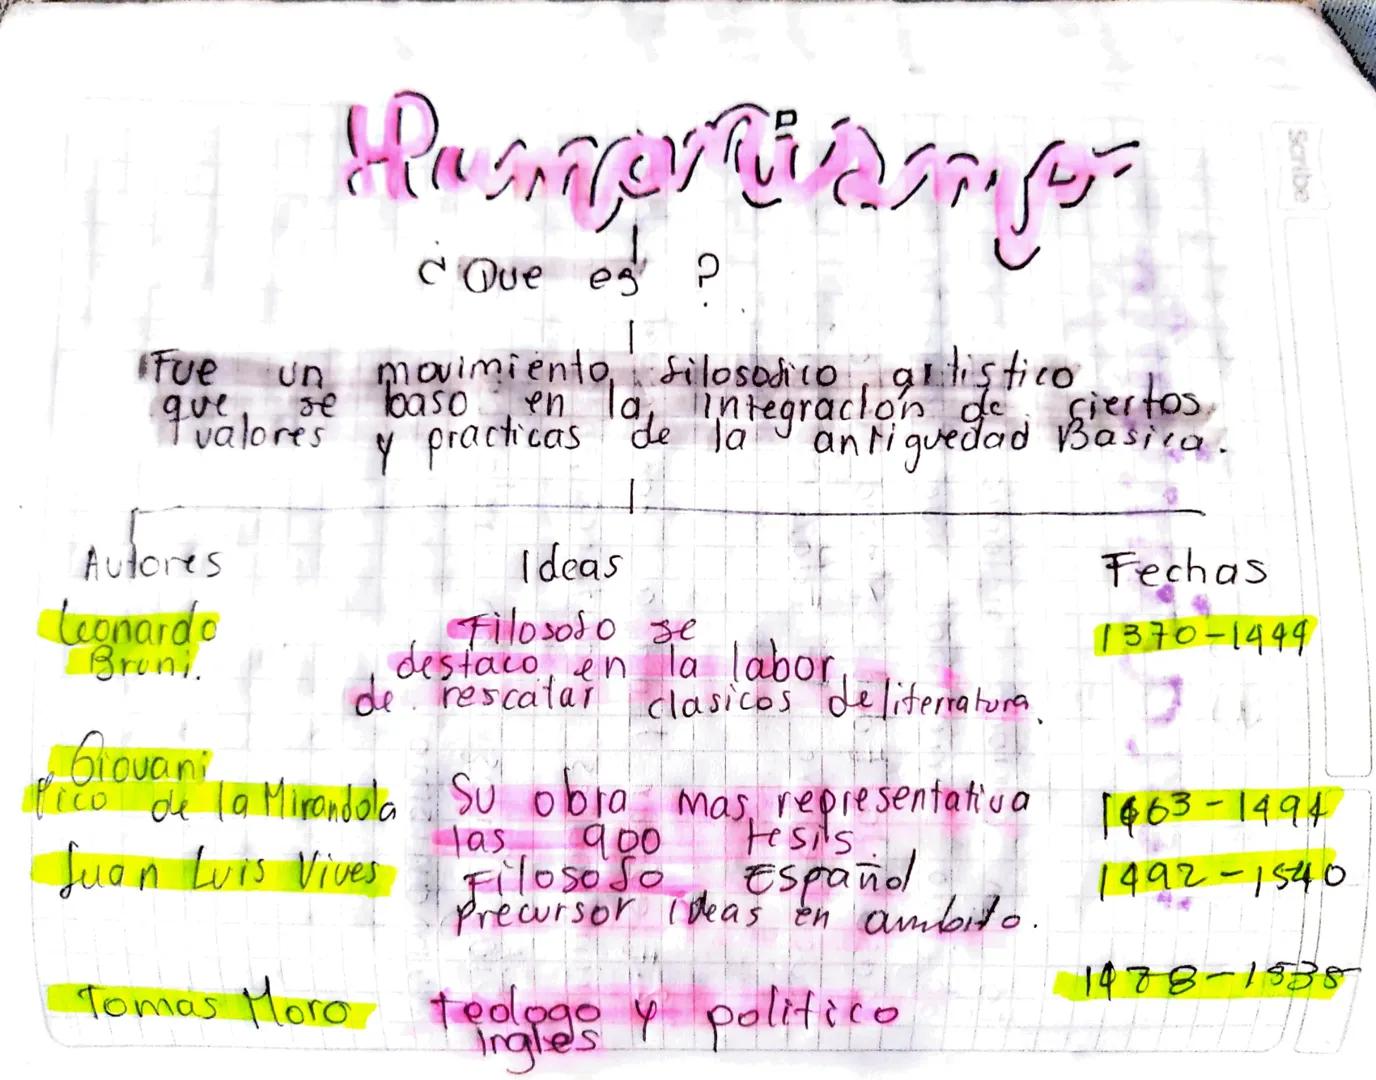 Humanismo
Scribe
¿Que es ?
Fue un movimiento, filosofico, artistico
que, se baso en la, integración de ciertos,
valores y practicas de la antiguedad Basica.
Autores Ideas Fechas
Leonardo Filosofo se 1370-1444
Bruni. destaco en la labor
de rescatar clasicos de literratura.
Giovani
Pico de la Mirandola Su obra mas representativa 1463-1494
las 900 tesis.
Juan Luis Vives Filosofo Español 1492-1540
Precursor ideas en ambito.
Tomas Moro teologo y politico 1478-1535
ingles